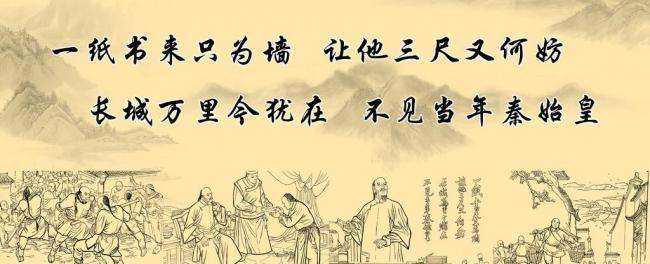 一纸书来只为墙 让他三尺又何妨
长城万里今犹在 不见当年秦始皇